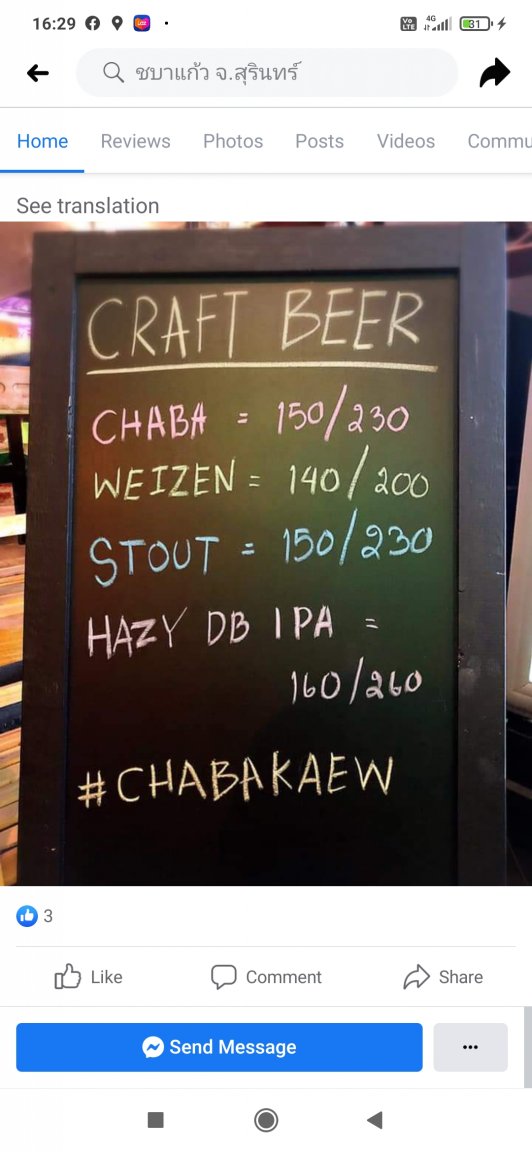 16:29
Vo LTE 4G 31
ชบาแก้ว จ.สุรินทร์
Home Reviews Photos Posts Videos Commu
See translation
CRAFT BEER
CHABA = 150/230
WEIZEN = 140/200
STOUT = 150/230
HAZY DB IPA =
160/260
#CHABAKAEW
3
Like Comment Share
Send Message ...